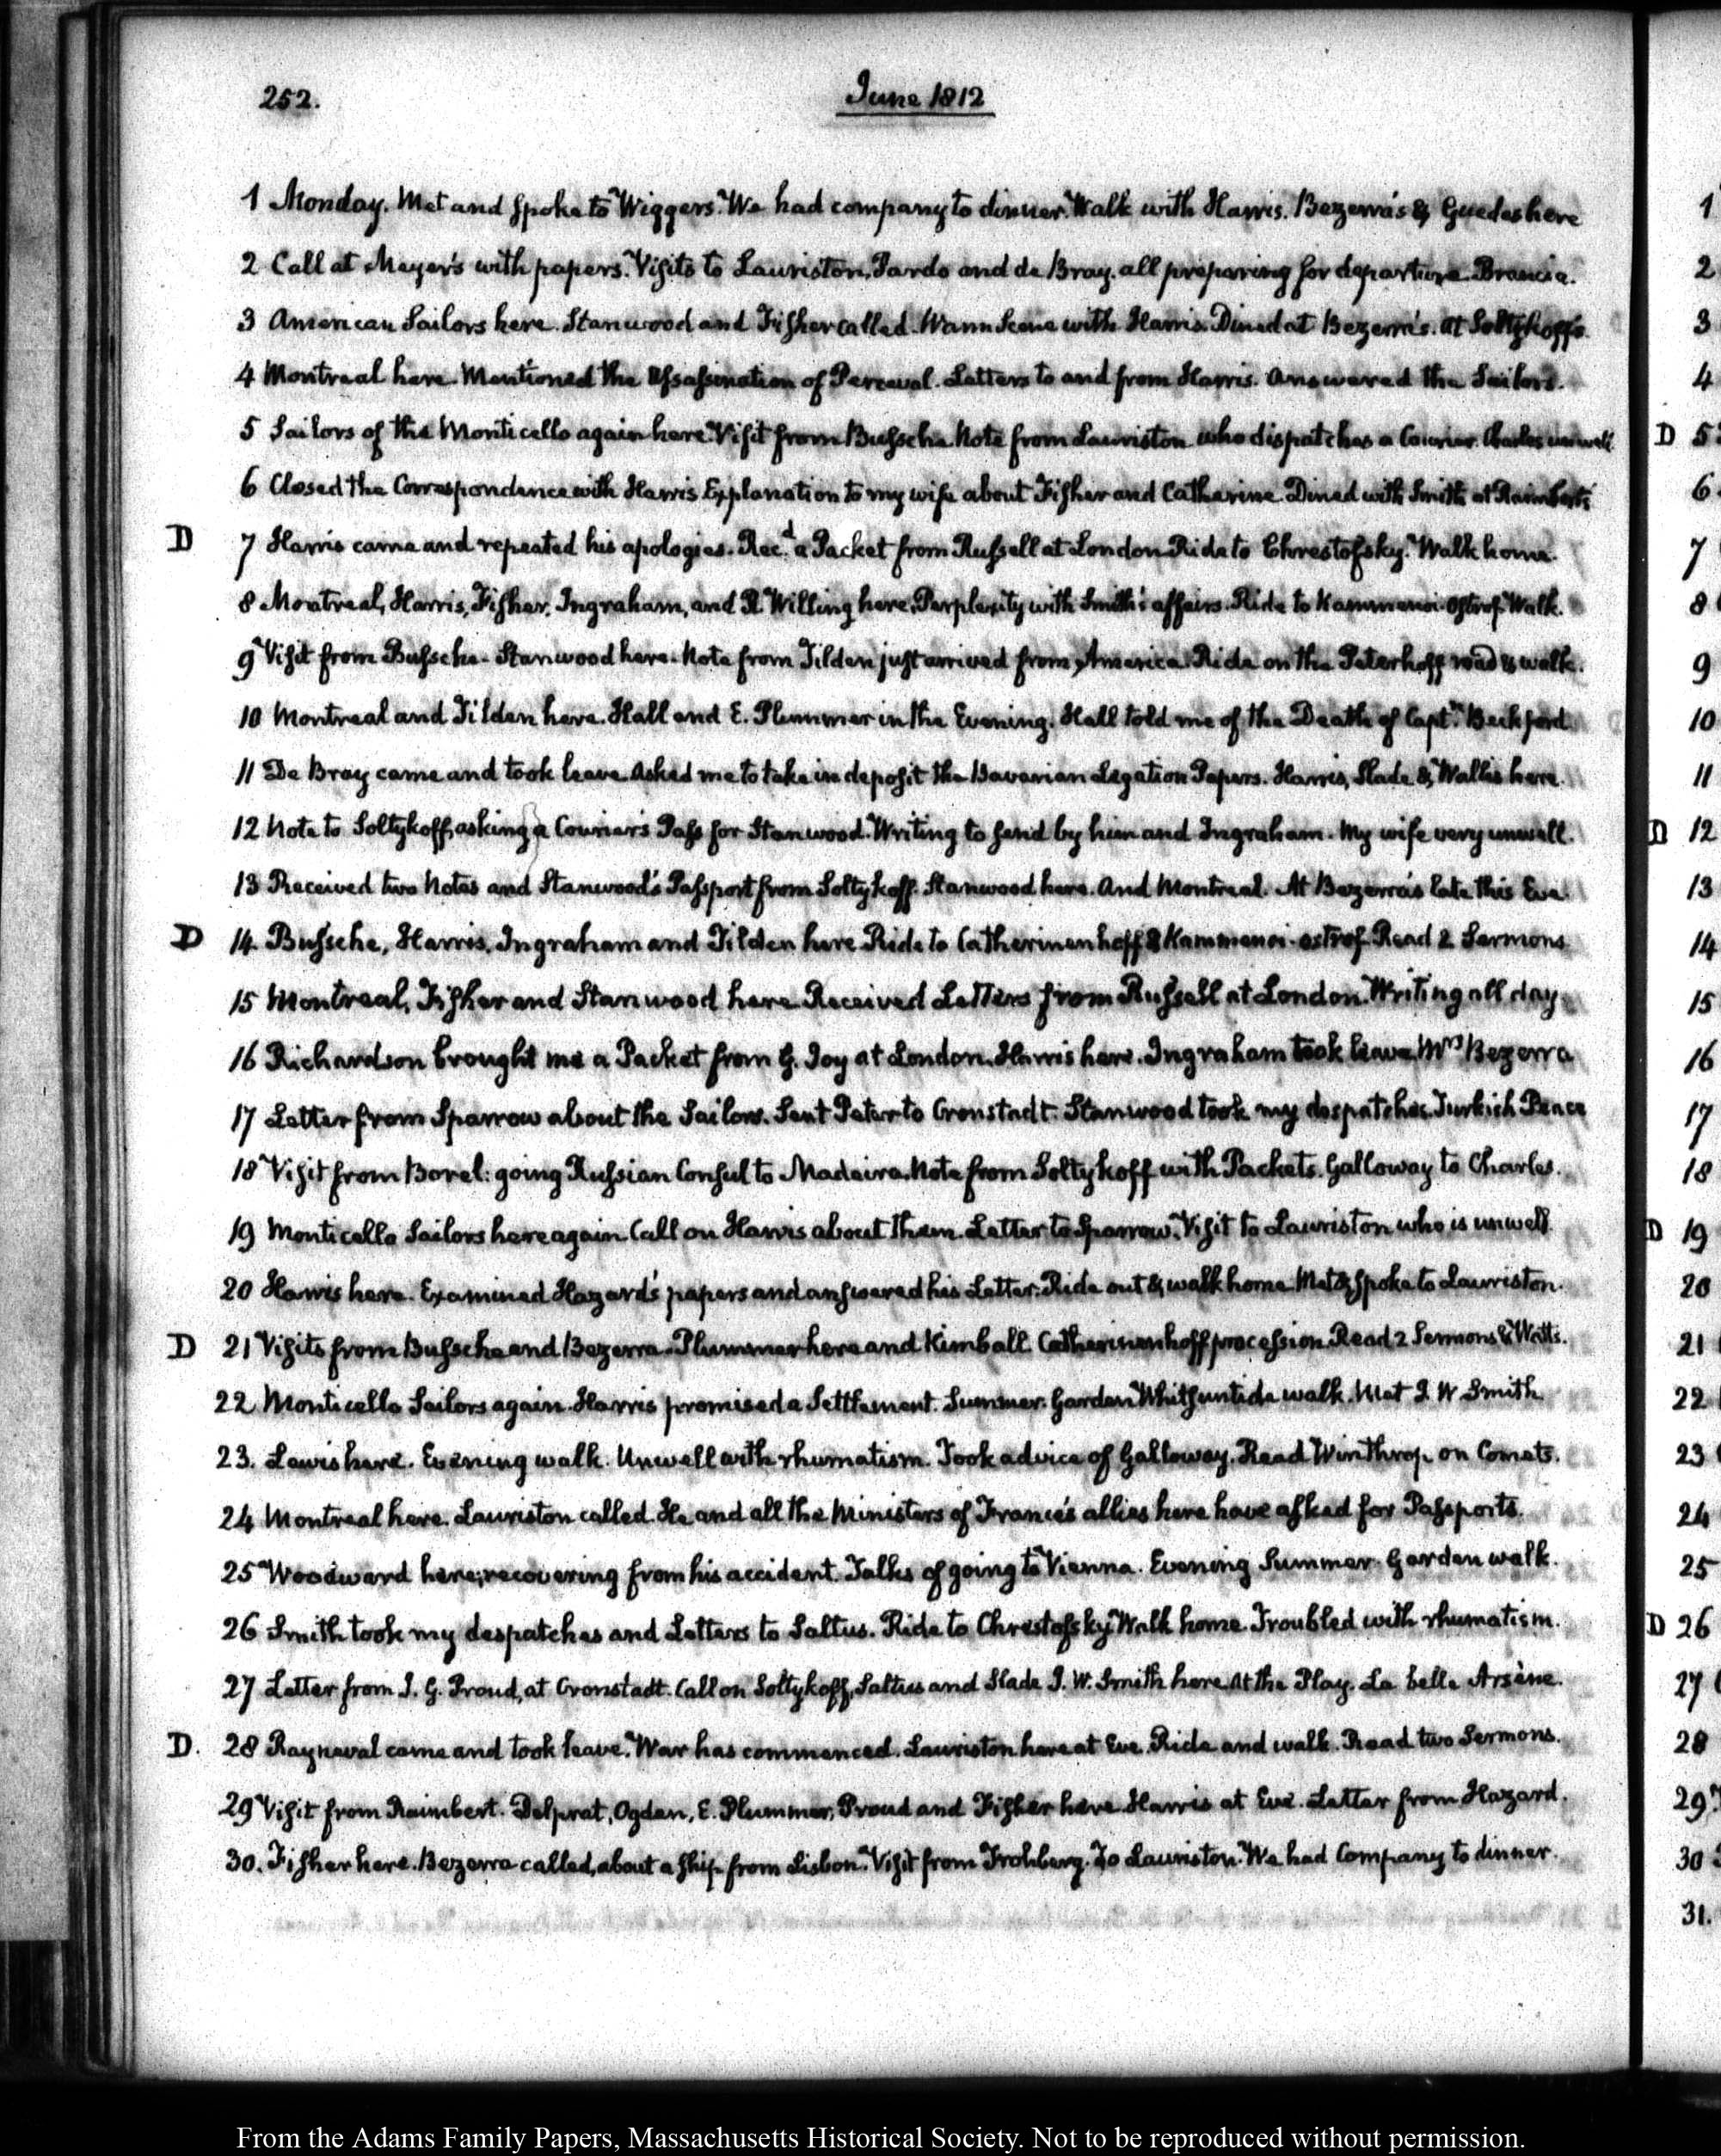 252.
June 1812
1 Monday. Met and spoke to Wiggers. We had company to dinner. Walk with Harris. Bezerra's & Guedes here
2 Call at Meyer's with papers. Visits to Lauriston, Pardo and de Bray. all preparing for departure. Brancia.
3 American Sailors here. Stanwood and Fisher called. Warm Scene with Harris. Dined at Bezerra's. At Soltykoff's.
4 Montreal here. Mentioned the Assassination of Perceval. Letters to and from Harris. Answered the Sailors.
5 Sailors of the Monticello again here. Visit from Bussche. Note from Lauriston who dispatches a Courier. Charles unwell.
6 Closed the Correspondence with Harris. Explanation to my wife about Fisher and Catherine. Dined with Smith at Raimbert's
D 7 Harris came and repeated his apologies. Rec.d a Packet from Russell at London. Ride to Chrestofsky. Walk home.
8 Montreal, Harris, Fisher, Ingraham, and R. Willing here. Perplexity with Smith's affairs. Ride to Kammenoi-ostrof. Walk.
9 Visit from Bussche. Stanwood here. Note from Tilden just arrived from America. Ride on the Peterhoff road & walk.
10 Montreal and Tilden here. Hall and E. Plummer in the Evening. Hall told me of the Death of Capt.n Beckford.
11 De Bray came and took leave. Asked me to take in deposit the Bavarian Legation Papers. Harris, Slade & Wallis here.
12 Note to Soltykoff, asking a Courier's Pass for Stanwood. Writing to send by him and Ingraham. My wife very unwell.
13 Received two Notes and Stanwood's Passport from Soltykoff. Stanwood here. And Montreal. At Bezerra's late this Eve.
D 14. Bussche, Harris, Ingraham and Tilden here. Ride to Catherinenhoff & Kammenoi-ostrof. Read 2 Sermons.
15 Montreal, Fisher and Stanwood here. Received Letters from Russell at London. Writing all day.
16 Richardson brought me a Packet from G. Joy at London. Harris here. Ingraham took leave. Mrs Bezerra
17 Letter from Sparrow about the Sailors. Sent Peter to Cronstadt. Stanwood took my despatches. Turkish Peace
18 Visit from Borel: going Russian Consul to Madeira. Note from Soltykoff with Packets. Galloway to Charles.
19 Monticello Sailors here again. Call on Harris about them. Letter to Sparrow. Visit to Lauriston who is unwell.
20 Harris here. Examined Hazard's papers and answered his Letter. Ride out & walk home. Met & spoke to Lauriston.
D 21 Visits from Bussche and Bezerra. Plummer here and Kimball. Catherinenhoff procession. Read 2 Sermons & Watts.
22 Monticello Sailors again. Harris promised a Settlement. Summer-Garden Whitsuntide walk. Met J. W. Smith
23. Lewis here. Evening walk. Unwell with rhumatism. Took advice of Galloway. Read Winthrop on Comets.
24 Montreal here. Lauriston called. He and all the Ministers of France's allies here have asked for Passports.
25 Woodward here; recovering from his accident. Talks of going to Vienna. Evening Summer-Garden walk.
26 Smith took my despatches and Letters to Saltus. Ride to Chrestofsky. Walk home. Troubled with rhumatism.
27 Letter from J. G. Proud, at Cronstadt. Call on Soltykoff, Saltus and Slade. J. W. Smith here. At the Play. La belle Arsène.
D. 28 Rayneval came and took leave. War has commenced. Lauriston here at Eve. Ride and walk. Read two Sermons.
29 Visit from Raimbert. Delprat, Ogden, E. Plummer, Proud and Fisher here. Harris at Eve. Letter from Hazard.
30. Fisher here. Bezerra called, about a ship from Lisbon. Visit from Frohberg. To Lauriston. We had Company to dinner.
1
2
3
4
D 5
6
7
8
9
10
11
D 12
13
14
15
16
17
18
D 19
20
21
22
23
24
25
D 26
27
28
29
30
31.
From the Adams Family Papers, Massachusetts Historical Society. Not to be reproduced without permission.